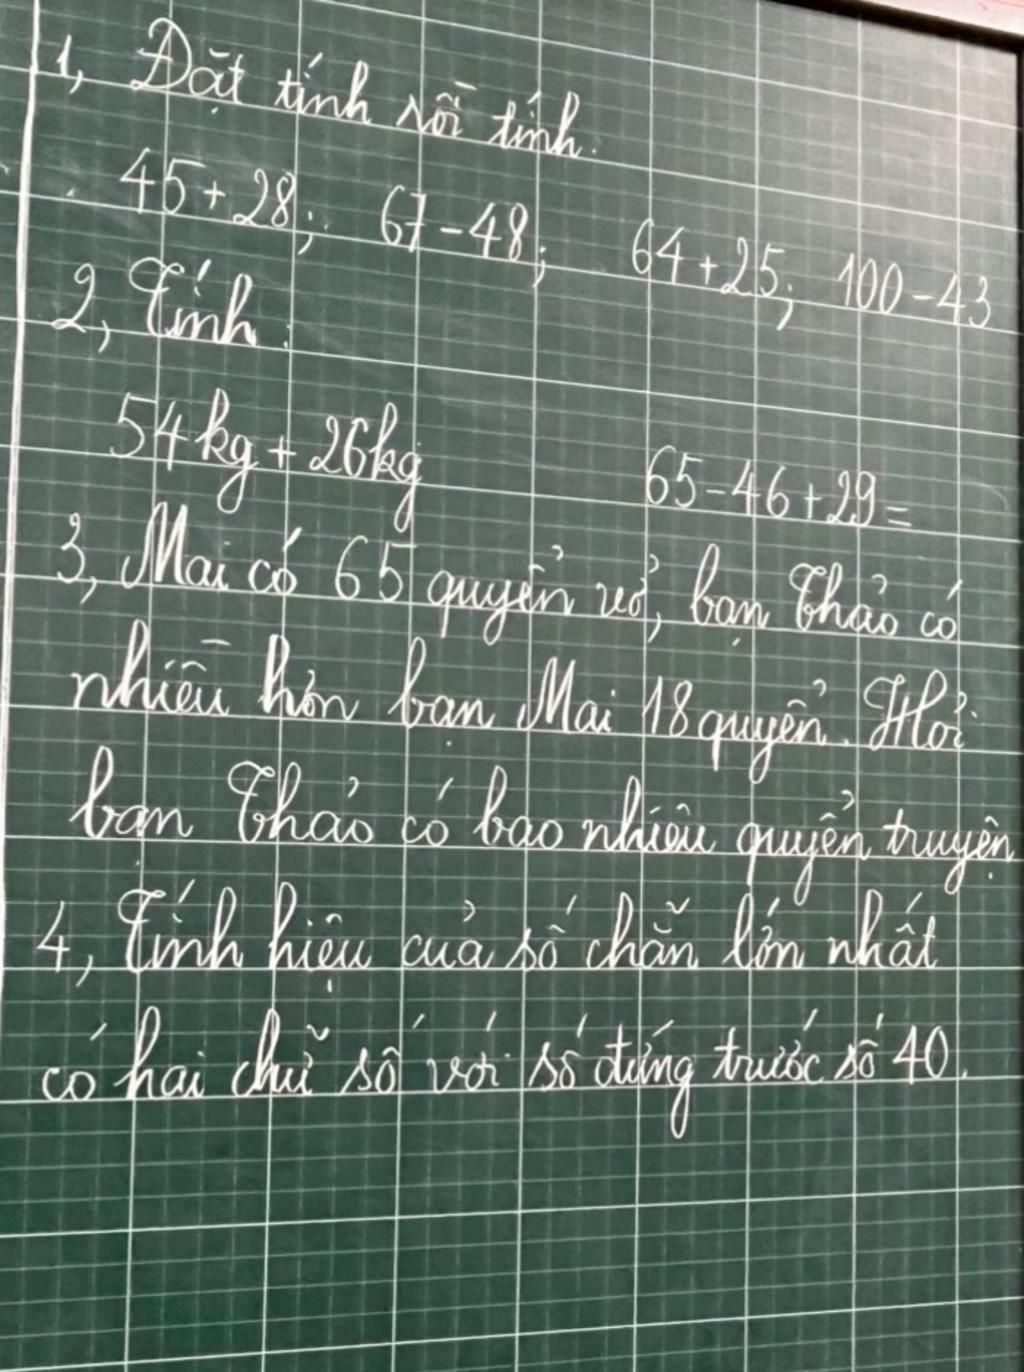 1, Đặt tính rồi tính.
45 + 28; 67 - 48; 64 + 25; 100 - 43
2, Tính.
54 kg + 26 kg 65 - 46 + 29 =
3, Mai có 65 quyển vở, bạn Thảo có
nhiều hơn bạn Mai 18 quyển. Hỏi
bạn Thảo có bao nhiêu quyển truyện
4, Tính hiệu của số chẵn lớn nhất
có hai chữ số với số đứng trước số 40.